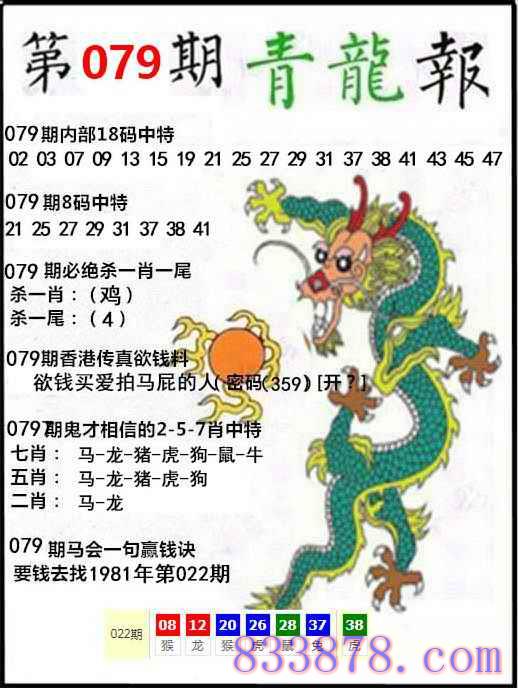 第079期 青龍報
079期内部18码中特
02 03 07 09 13 15 19 21 25 27 29 31 37 38 41 43 45 47
079期8码中特
21 25 27 29 31 37 38 41
079 期必绝杀一肖一尾
杀一肖：（鸡）
杀一尾：（4）
079期香港传真欲钱料
欲钱买爱拍马屁的人( 密码(359) [开？]
079期鬼才相信的2-5-7肖中特
七肖： 马-龙-猪-虎-狗-鼠-牛
五肖： 马-龙-猪-虎-狗
二肖： 马-龙
079 期马会一句赢钱诀
要钱去找1981年第022期
022期 08 12 20 26 28 37 38
猴 龙 猴 虎 鼠 兔 虎
833878.com